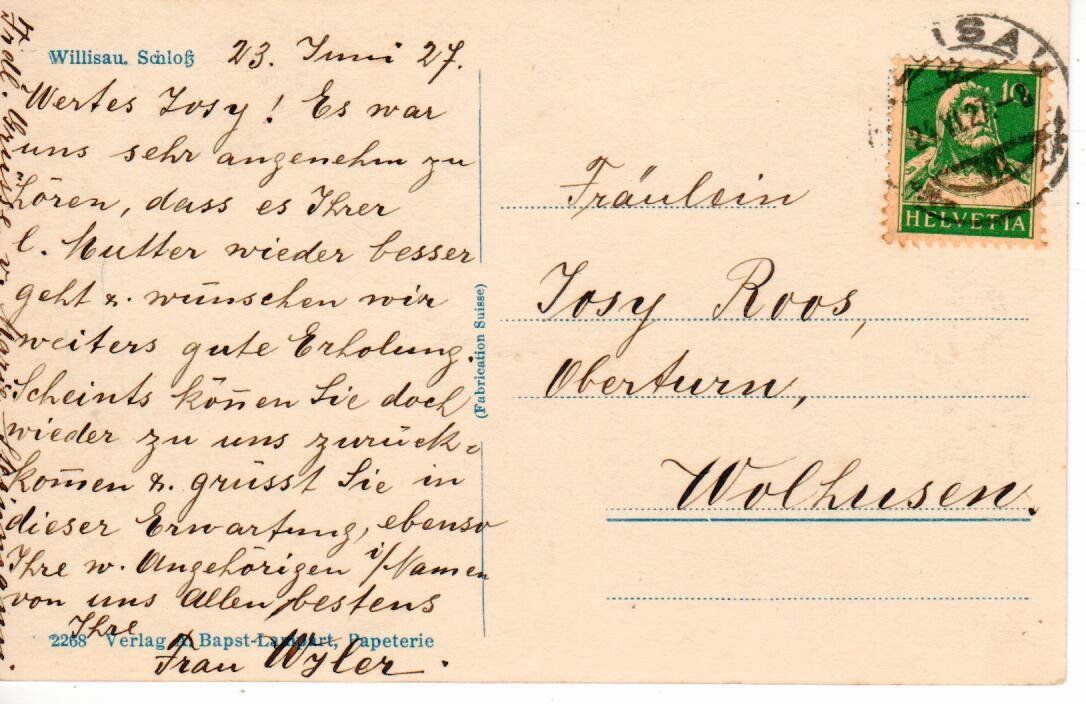 Willisau. Schloß 23. Juni 27.
Wertes Josy! Es war
uns sehr angenehm zu
hören, dass es Ihrer
l. Mutter wieder besser
geht & wünschen wir
weiters gute Erholung.
Scheints kön̄en Sie doch
wieder zu uns zurück-
kom̄en & grüsst Sie in
dieser Erwartung, ebenso
Ihre w. Angehörigen i/Namen
von uns allen bestens
Ihre
2268 Verlag A. Bapst-Lampart, Papeterie
Frau Wyler.
(Fabrication Suisse)
ISAU
10
HELVETIA
Fräulein
Josy Roos,
Oberturn,
Wolhusen.